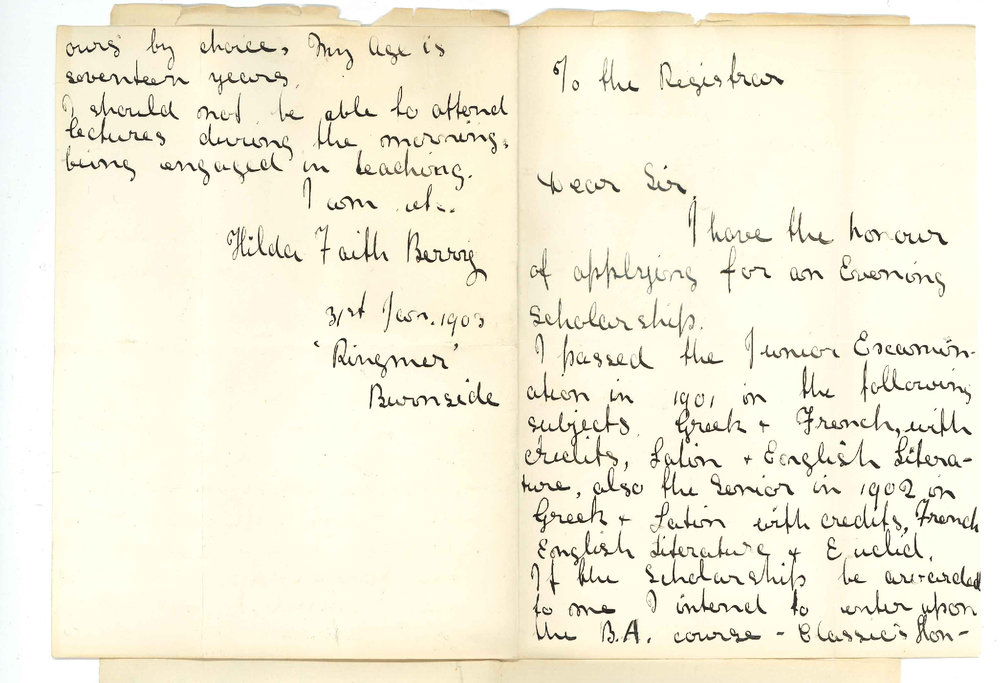 To the Registrar
Dear Sir,
I have the honour
of applying for an Evening
Scholarship.
I passed the Junior Examin-
ation in 1901 in the following
subjects. Greek + French, with
credits, Latin + English Litera-
ture, also the Senior in 1902 in
Greek + Latin with credits, French
English Literature + Euclid.
If the Scholarship be awarded
to me I intend to enter upon
the B.A. course - Classic's Hon-
ours by choice. My age is
seventeen years.
I should not be able to attend
lectures during the morning,
being engaged in teaching.
I am etc.
Hilda Faith Berry
31st Jan. 1903
'Ringmer'
Burnside